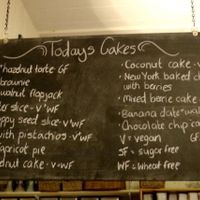 Todays Cakes
hazelnut torte GF
brownie
walnut flapjack
slice - V* WF
ppy seed slice - V* WF
with pistachios - V* WF
apricot pie
dnut cake - V* WF
Coconut cake - V
New York baked ch
with berries
Mixed berrie cake
Banana date
Chocolate chip ca
V = vegan
SF = sugar free
WF = wheat free